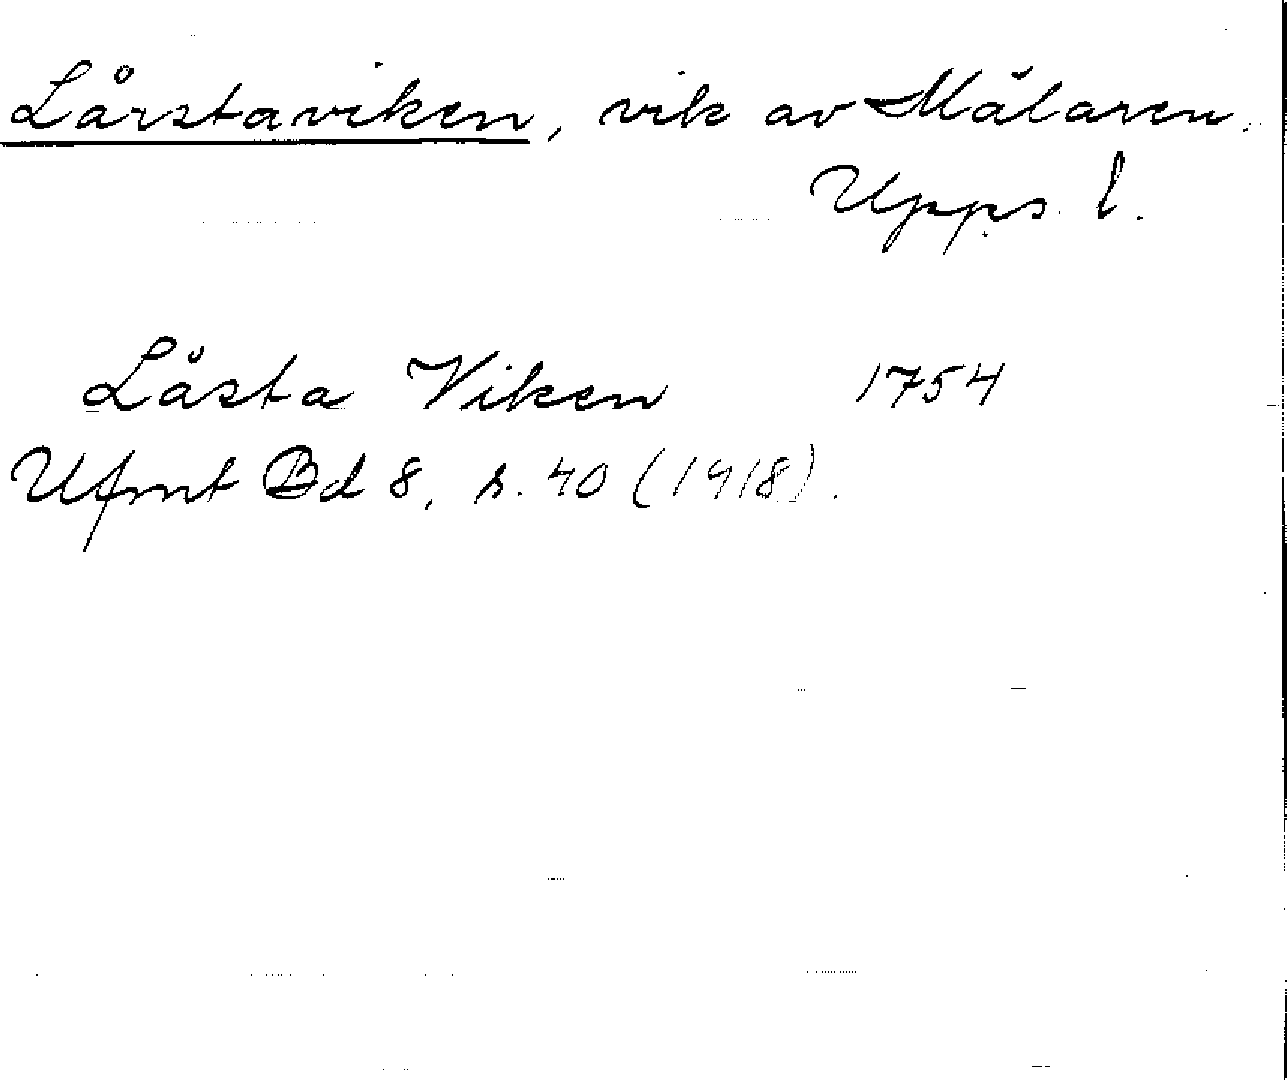 Lårstaviken, vik av Mälaren.
Upps. l.
Låsta Viken 1754
Ufmt Bd 8, s. 40 (1918).